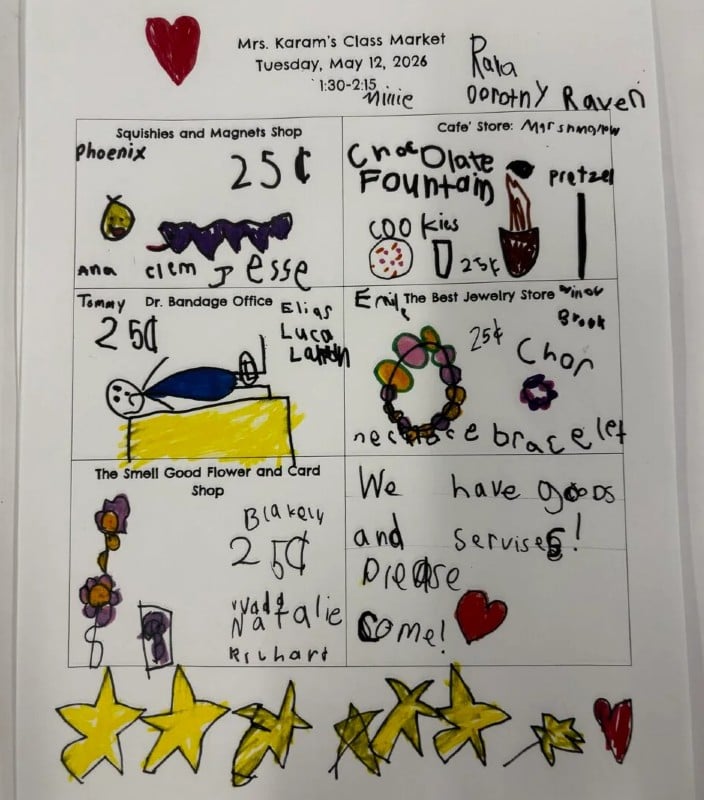 Mrs. Karam's Class Market
Tuesday, May 12, 2026
1:30-2:15
Millie
Dorothy Raven
Squishies and Magnets Shop
Phoenix
25¢
Ana Clem Jesse
Cafe' Store: Marshmallow
Chocolate
Fountain
Pretzel
COOkies
25¢
Tommy Dr. Bandage Office
25¢
Elias
Luca
The Best Jewelry Store
Brook
25¢
necklace bracelet
The Smell Good Flower and Card
Shop
Blakely
25¢
Natalie
Richart
We have goods
and servises!
Please
come!